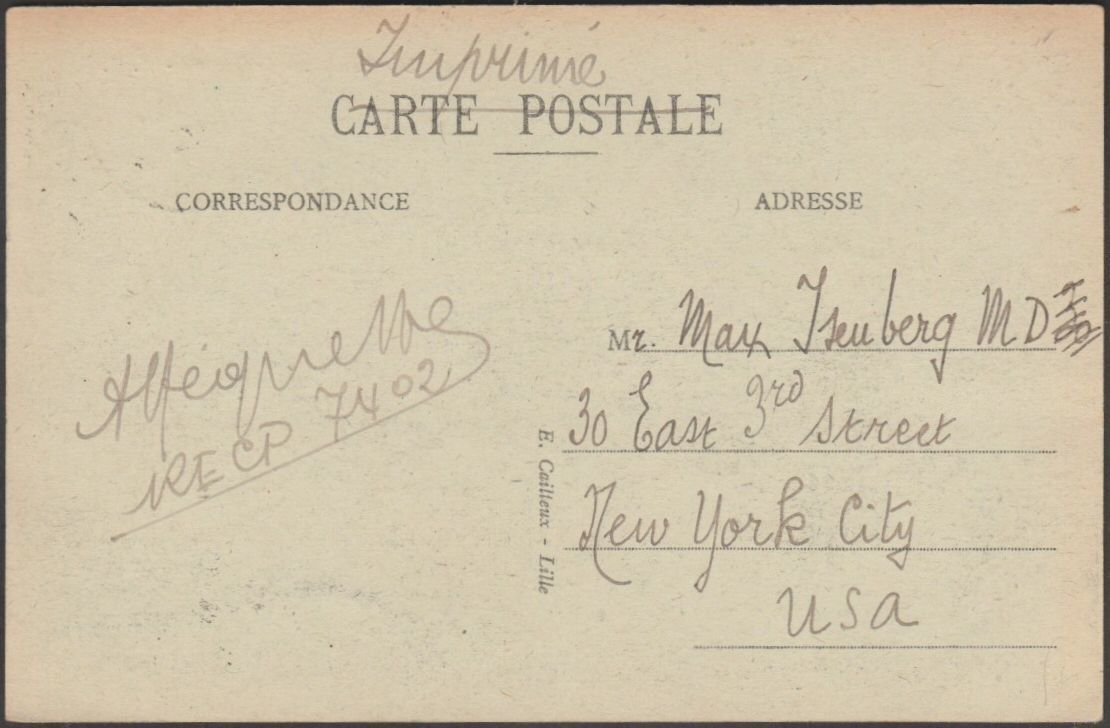 Imprimé
CARTE POSTALE
CORRESPONDANCE
ADRESSE
RECP 7402
Mr. Max Isenberg MD
30 East 3rd Street
New York City
USA
E. Cailteux - Lille